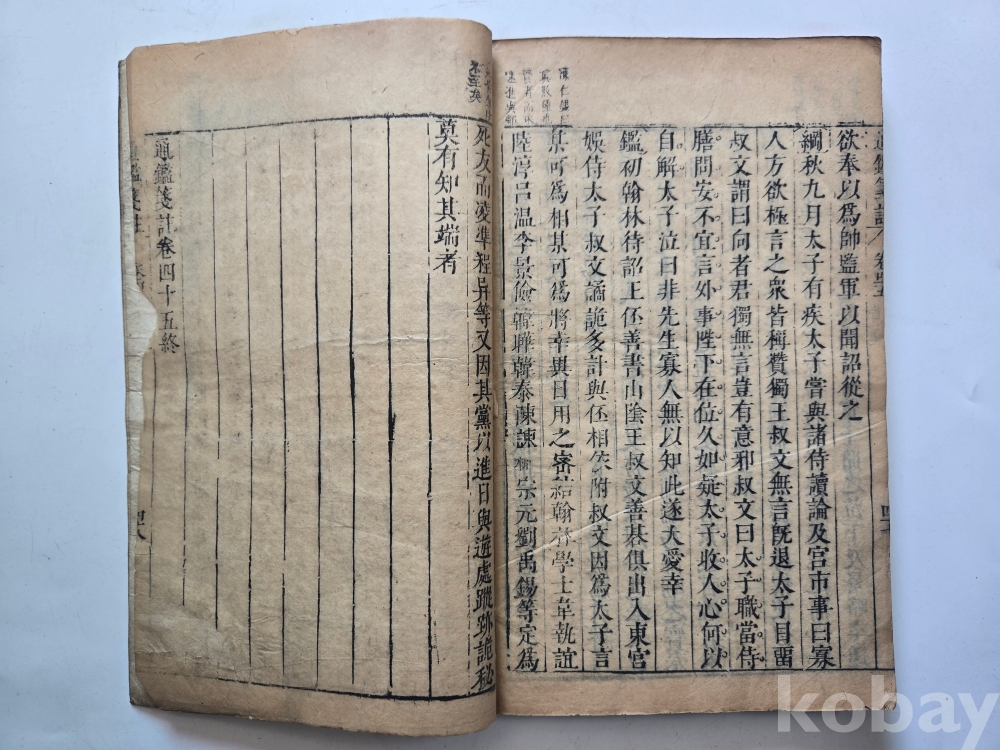 欲奉以爲帥監軍以聞詔從之
綱秋九月太子有疾太子嘗與諸侍讀論及宮市事曰寡
人方欲極言之衆皆稱贊獨王叔文無言既退太子自畱
叔文謂曰向者君獨無言豈有意邪叔文曰太子職當侍
膳問安不宜言外事陛下在位久如疑太子收人心何以
自解太子泣曰非先生寡人無以知此遂大愛幸
鑑初翰林待詔王伾善書山陰王叔文善碁俱出入東宮
娛侍太子叔文譎詭多計與伾相依附叔文因爲太子言
某可爲相某可爲將幸異日用之密結翰林學士韋執誼
陸淳呂温李景儉韓曄韓泰陳諫柳宗元劉禹錫等定爲
死友而凌準程异等又因其黨以進日與遊處蹤跡詭秘
莫有知其端者
通鑑箋註卷四十五終
四八
kobay